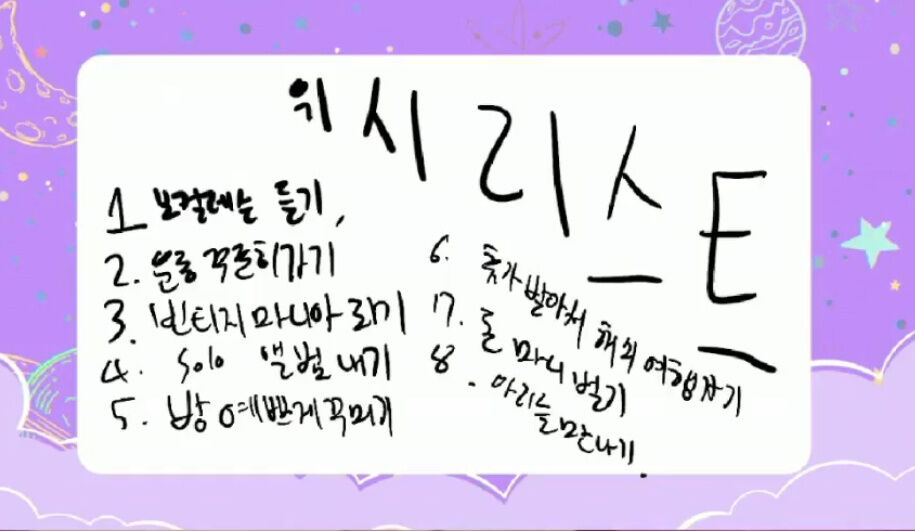 위시리스트
1. 보컬레슨 듣기,
2. 운동 꾸준히가기
3. 빈티지 마니아 되기
4. Solo 앨범내기
5. 방 예쁘게꾸미기
6. 휴가 받아서 해외여행가기
7. 돈 마니 벌기
8. 아리들만나기.